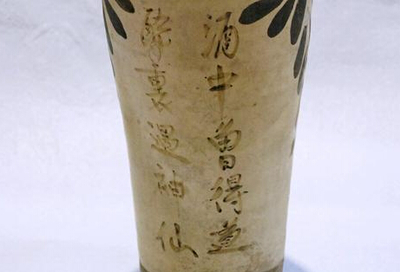 酒中曾得道
醉裏遇神仙